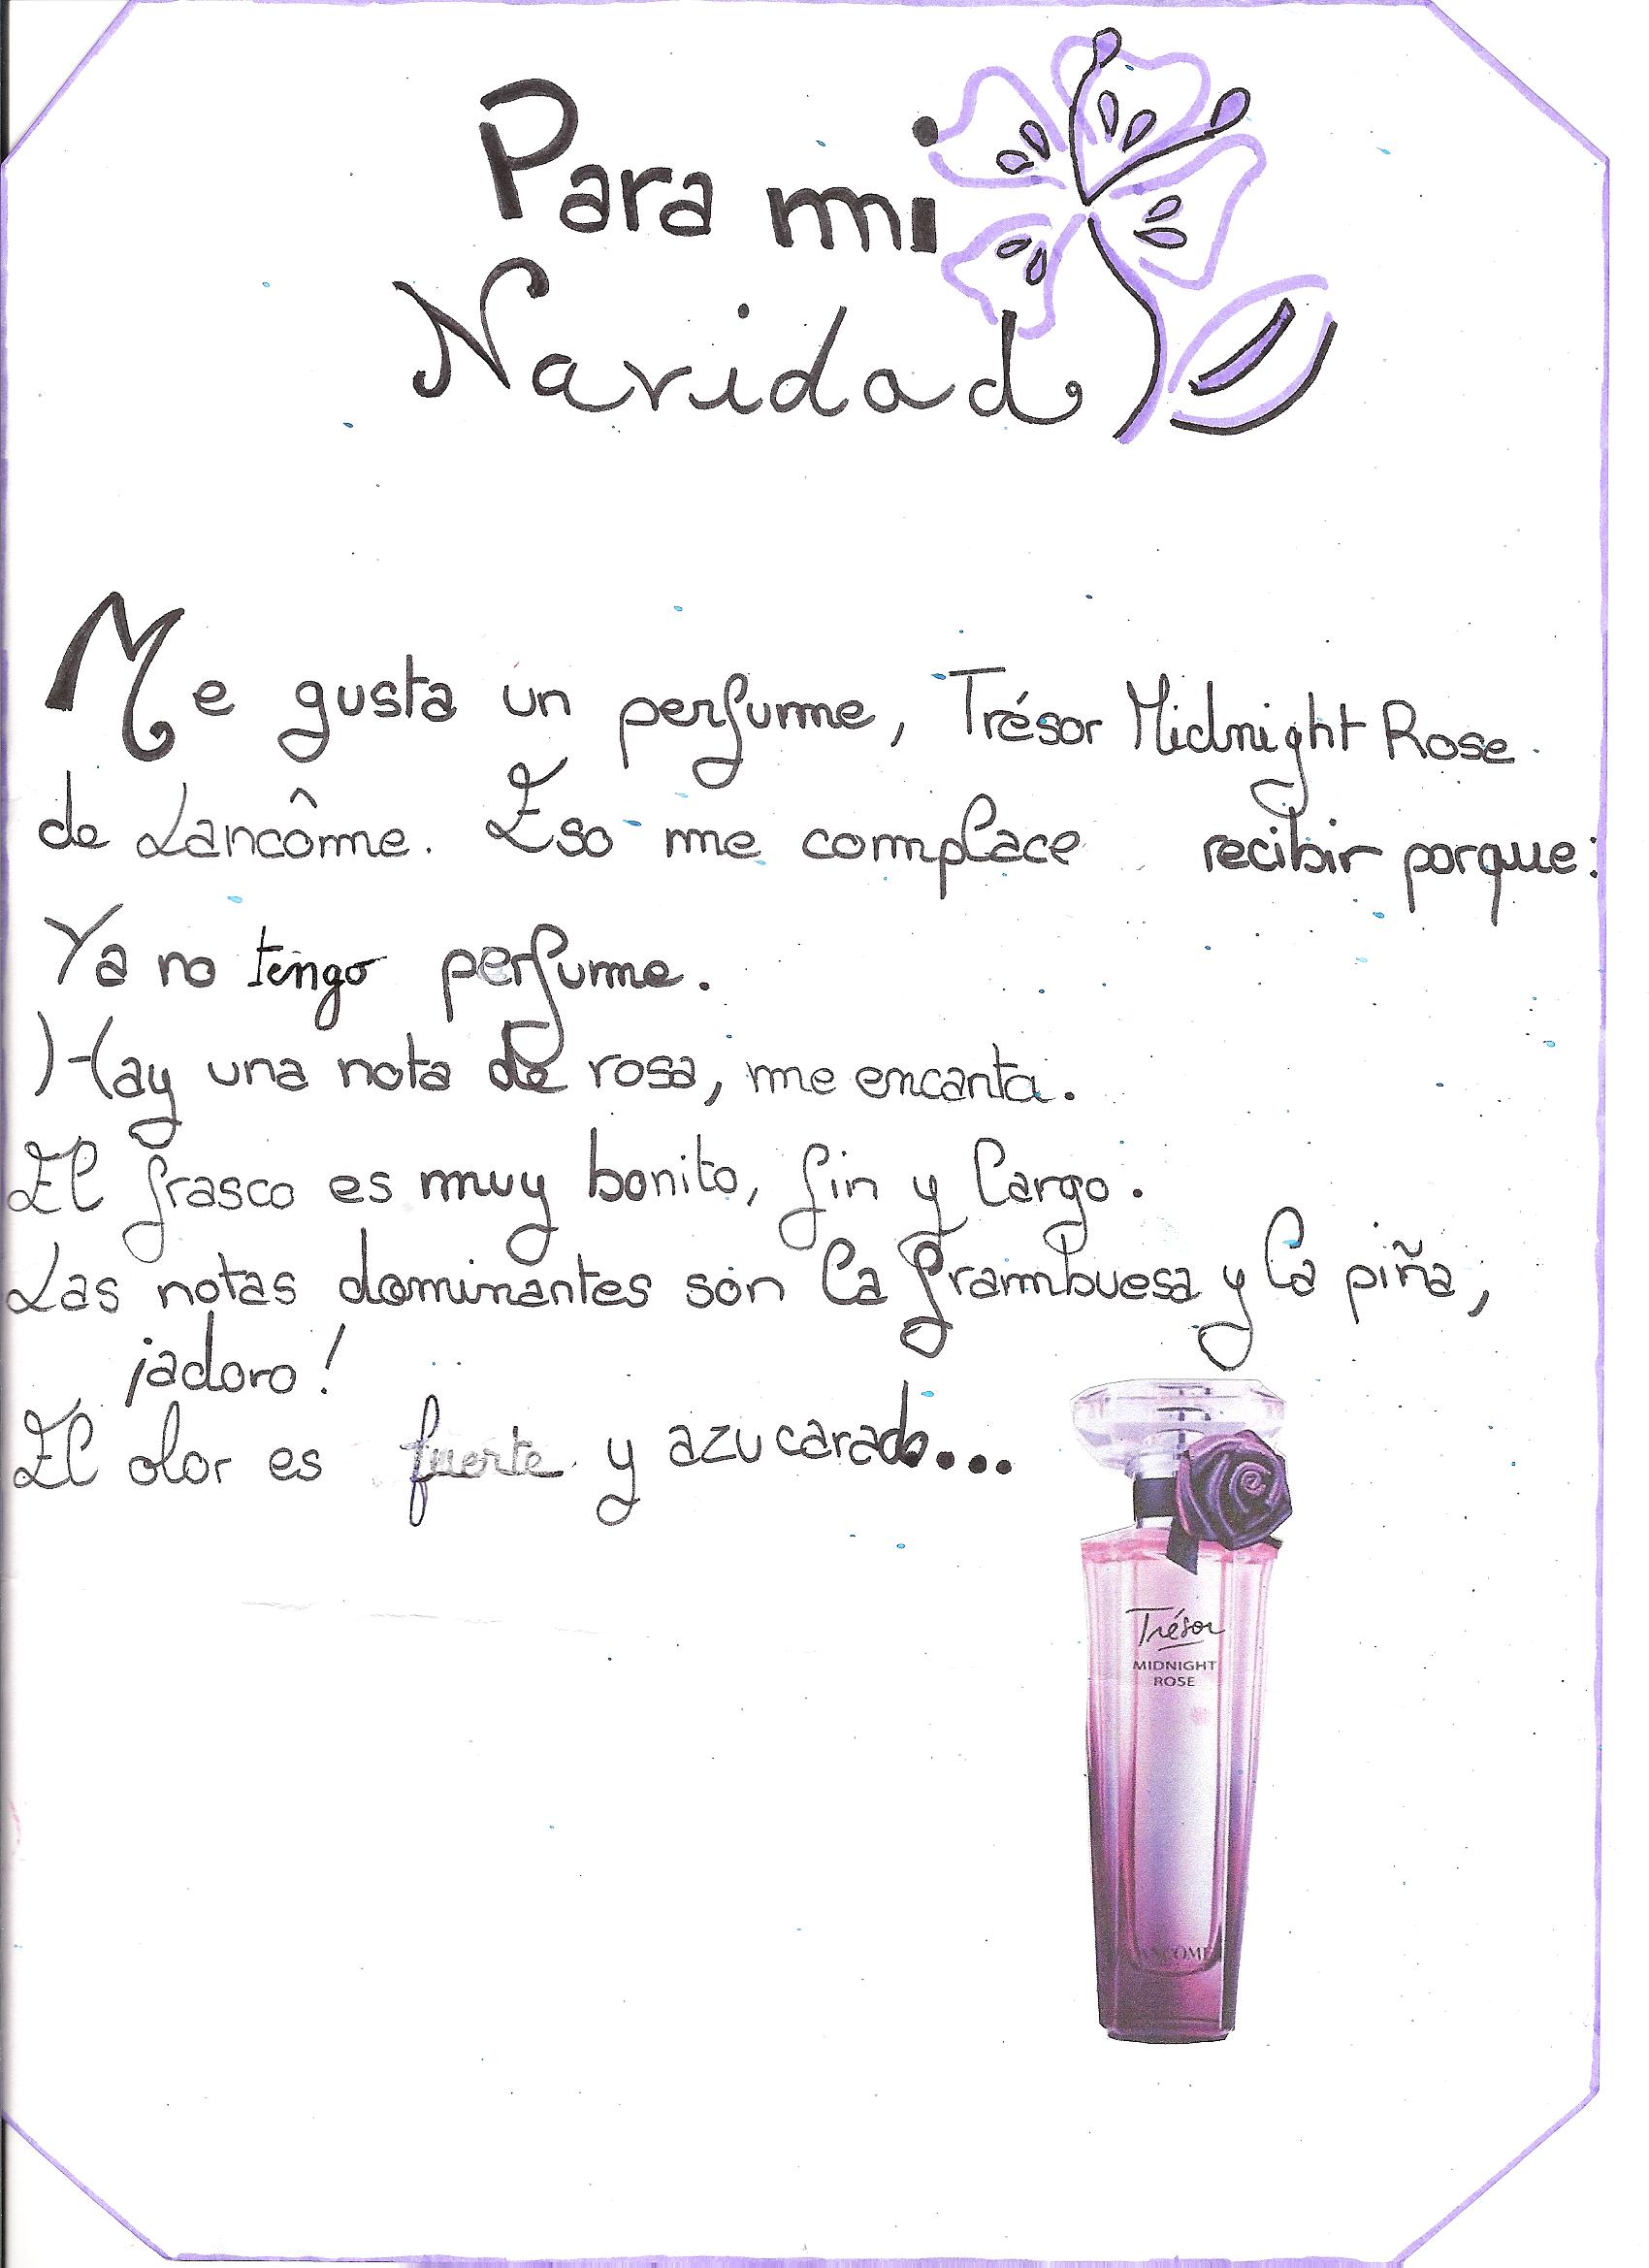 Para mi
Navidad
Me gusta un perfume, Trésor Midnight Rose
de Lancôme. Eso me complace recibir porque:
Ya no tengo perfume.
Hay una nota de rosa, me encanta.
El frasco es muy bonito, fin y largo.
Las notas dominantes son la frambuesa y la piña,
¡adoro!
El olor es fuerte y azucarado...
Trésor
MIDNIGHT
ROSE
LANCOME